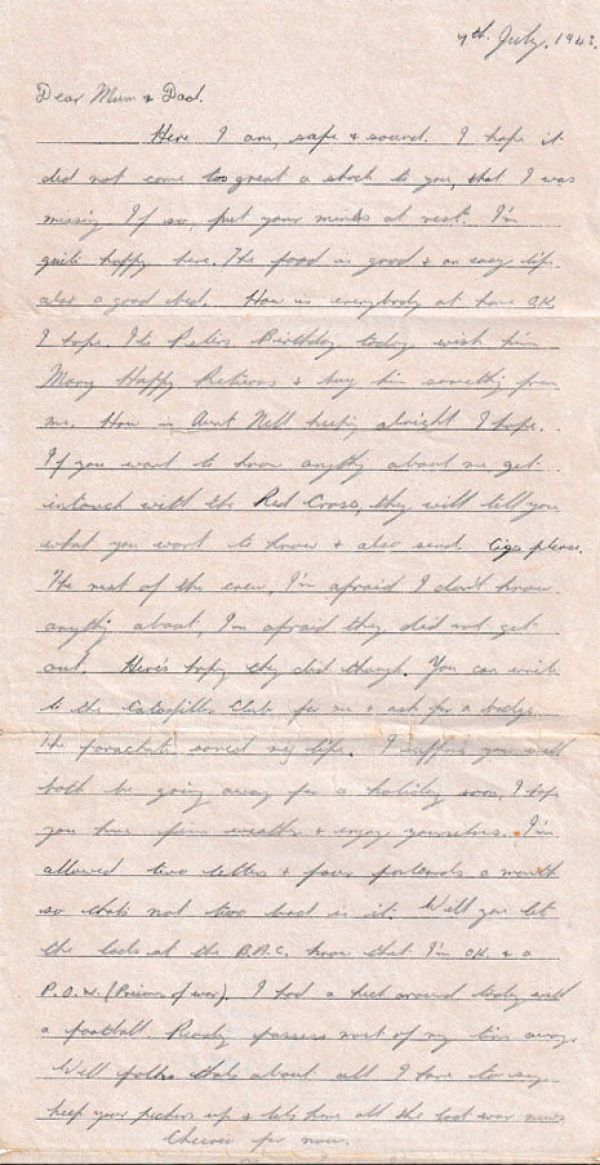 7th. July, 1943.
Dear Mum & Dad.
Here I am, safe & sound. I hope it
did not come too great a shock to you, that I was
missing. If so, put your minds at rest. I'm
quite happy here. The food is good & an easy life
also a good bed. How is everybody at home O.K.
I hope. Its Peters Birthday today wish him
Many Happy Returns & buy him something from
me. How is Aunt Nell keeping alright I hope.
If you want to know anything about me get
intouch with the Red Cross, they will tell you
what you want to know & also send. Cigs please.
The rest of the crew, I'm afraid I don't know
anything about, I'm afraid they did not get
out. Here's hoping they did though. You can write
to the Caterpillar Club for me & ask for a badge.
The parachute saved my life. I suppose you will
both be going away for a holiday soon, I hope
you have fine weather & enjoy yourselves. I'm
allowed two letters & four postcards a month
so thats not too bad is it. Will you let
the lads at the B.A.C. know that I'm O.K. & a
P.O.W. (Prisoner of war). I had a kick around today with
a football. Reading passes most of my time away.
Well folks thats about all I have to say
keep your peckers up & lets have all the war news
Cheerio for now.